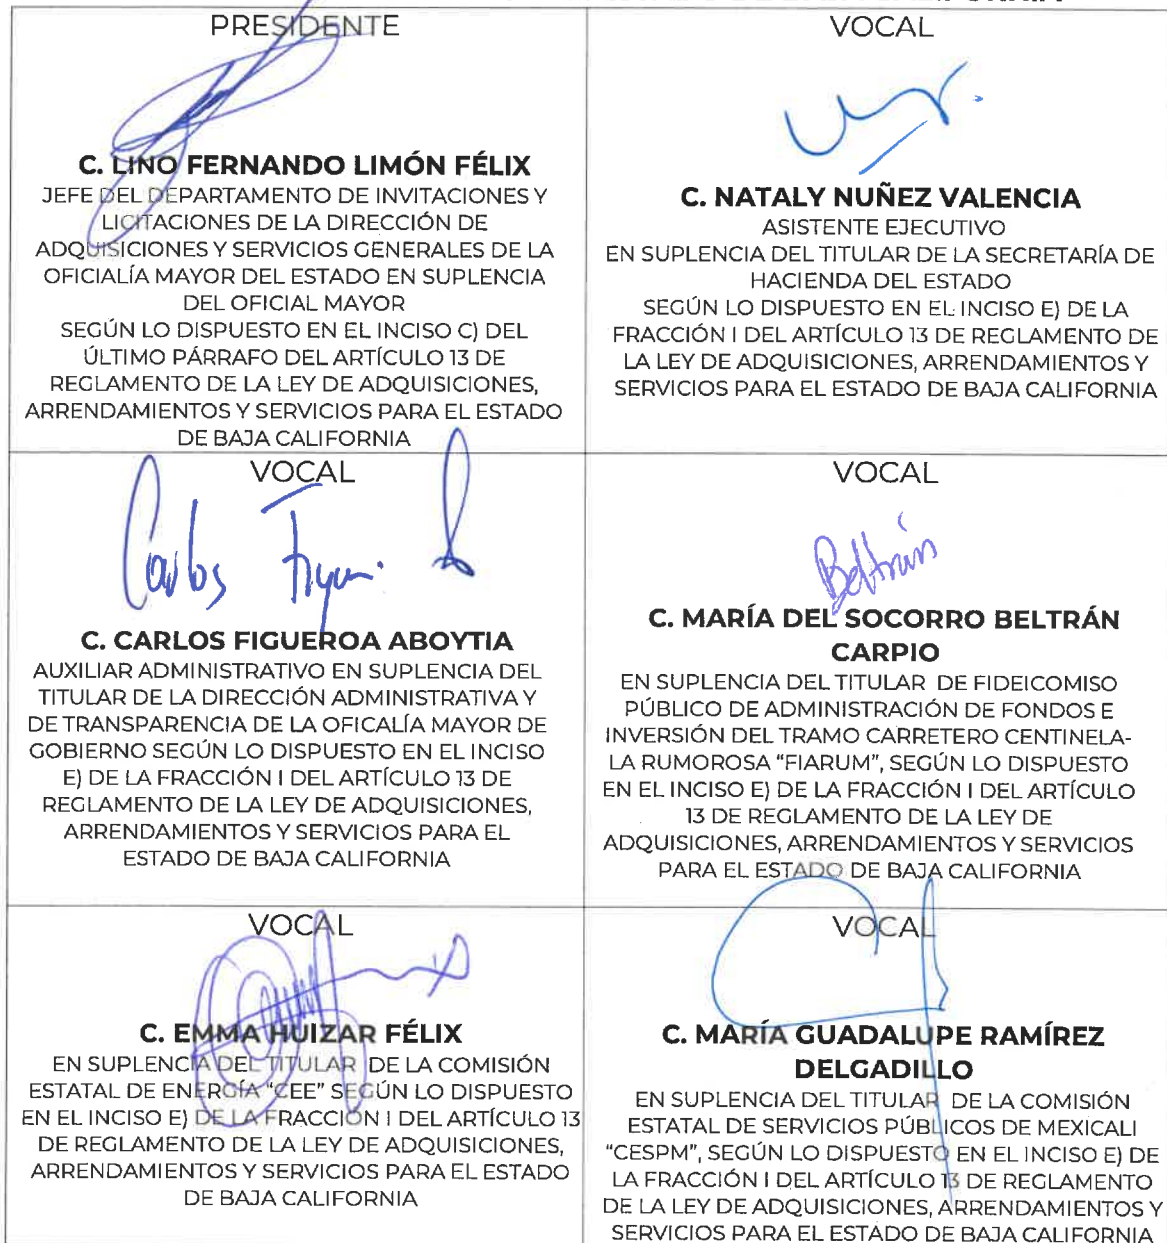 PRESIDENTE
C. LINO FERNANDO LIMÓN FÉLIX
JEFE DEL DEPARTAMENTO DE INVITACIONES Y
LICITACIONES DE LA DIRECCIÓN DE
ADQUISICIONES Y SERVICIOS GENERALES DE LA
OFICIALÍA MAYOR DEL ESTADO EN SUPLENCIA
DEL OFICIAL MAYOR
SEGÚN LO DISPUESTO EN EL INCISO C) DEL
ÚLTIMO PÁRRAFO DEL ARTÍCULO 13 DE
REGLAMENTO DE LA LEY DE ADQUISICIONES,
ARRENDAMIENTOS Y SERVICIOS PARA EL ESTADO
DE BAJA CALIFORNIA
VOCAL
C. NATALY NUÑEZ VALENCIA
ASISTENTE EJECUTIVO
EN SUPLENCIA DEL TITULAR DE LA SECRETARÍA DE
HACIENDA DEL ESTADO
SEGÚN LO DISPUESTO EN EL INCISO E) DE LA
FRACCIÓN I DEL ARTÍCULO 13 DE REGLAMENTO DE
LA LEY DE ADQUISICIONES, ARRENDAMIENTOS Y
SERVICIOS PARA EL ESTADO DE BAJA CALIFORNIA
VOCAL
Carlos
C. CARLOS FIGUEROA ABOYTIA
AUXILIAR ADMINISTRATIVO EN SUPLENCIA DEL
TITULAR DE LA DIRECCIÓN ADMINISTRATIVA Y
DE TRANSPARENCIA DE LA OFICALÍA MAYOR DE
GOBIERNO SEGÚN LO DISPUESTO EN EL INCISO
E) DE LA FRACCIÓN I DEL ARTÍCULO 13 DE
REGLAMENTO DE LA LEY DE ADQUISICIONES,
ARRENDAMIENTOS Y SERVICIOS PARA EL
ESTADO DE BAJA CALIFORNIA
VOCAL
Beltrán
C. MARÍA DEL SOCORRO BELTRÁN
CARPIO
EN SUPLENCIA DEL TITULAR DE FIDEICOMISO
PÚBLICO DE ADMINISTRACIÓN DE FONDOS E
INVERSIÓN DEL TRAMO CARRETERO CENTINELA-
LA RUMOROSA “FIARUM”, SEGÚN LO DISPUESTO
EN EL INCISO E) DE LA FRACCIÓN I DEL ARTÍCULO
13 DE REGLAMENTO DE LA LEY DE
ADQUISICIONES, ARRENDAMIENTOS Y SERVICIOS
PARA EL ESTADO DE BAJA CALIFORNIA
VOCAL
C. EMMA HUIZAR FÉLIX
EN SUPLENCIA DEL TITULAR DE LA COMISIÓN
ESTATAL DE ENERGÍA “CEE” SEGÚN LO DISPUESTO
EN EL INCISO E) DE LA FRACCIÓN I DEL ARTÍCULO 13
DE REGLAMENTO DE LA LEY DE ADQUISICIONES,
ARRENDAMIENTOS Y SERVICIOS PARA EL ESTADO
DE BAJA CALIFORNIA
VOCAL
C. MARÍA GUADALUPE RAMÍREZ
DELGADILLO
EN SUPLENCIA DEL TITULAR DE LA COMISIÓN
ESTATAL DE SERVICIOS PÚBLICOS DE MEXICALI
“CESPM”, SEGÚN LO DISPUESTO EN EL INCISO E) DE
LA FRACCIÓN I DEL ARTÍCULO 13 DE REGLAMENTO
DE LA LEY DE ADQUISICIONES, ARRENDAMIENTOS Y
SERVICIOS PARA EL ESTADO DE BAJA CALIFORNIA